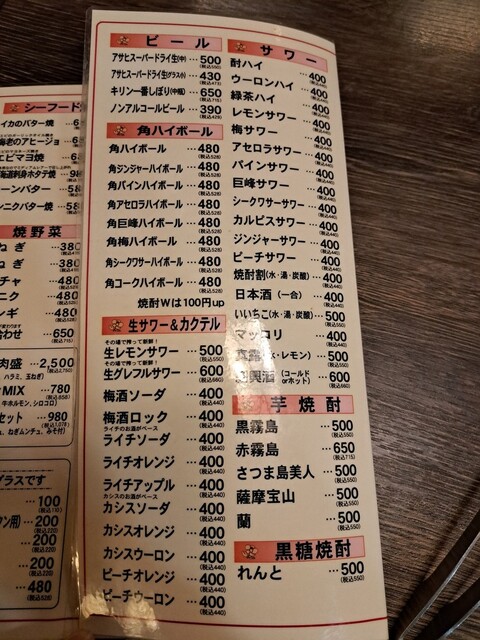 シーフード
イカのバター焼
海老のアヒージョ
エビマヨ焼
ーンバター
ンニクバター
焼野菜
ねぎ …380
ねぎ …380
チャ …480
ニク …480
ンギ …480
合わせ …650
肉盛 …2,500
ハラミ、玉ねぎ)
MIX …780
牛ホルモン、シロコロ)
セット …980
、ねぎムンチュ、みそ付)
グラスです
…100
(税込110)
タン用) …200
(税込220)
…200
(税込220)
…200
(税込220)
…480
(税込528)
ビール
アサヒスーパードライ生(中) …500
(税込550)
アサヒスーパードライ生(グラス小) …430
(税込473)
キリン一番しぼり(中瓶) …650
(税込715)
ノンアルコールビール …390
(税込429)
角ハイボール
角ハイボール …480
(税込528)
角ジンジャーハイボール …480
(税込528)
角パインハイボール …480
(税込528)
角アセロラハイボール …480
(税込528)
角巨峰ハイボール …480
(税込528)
角梅ハイボール …480
(税込528)
角シークワサーハイボール …480
(税込528)
角コークハイボール …480
(税込528)
焼酎Wは100円up
生サワー&カクテル
その場で搾って新鮮!
生レモンサワー …500
(税込550)
その場で搾って新鮮!
生グレフルサワー …600
(税込660)
梅酒ソーダ …400
(税込440)
梅酒ロック …400
(税込440)
ライチのお酒がベース
ライチソーダ …400
(税込440)
ライチオレンジ …400
(税込440)
ライチアップル …400
(税込440)
カシスのお酒がベース
カシスソーダ …400
(税込440)
カシスオレンジ …400
(税込440)
カシスウーロン …400
(税込440)
ピーチオレンジ …400
(税込440)
ピーチウーロン …400
(税込440)
サワー
酎ハイ …400
(税込440)
ウーロンハイ …400
(税込440)
緑茶ハイ …400
(税込440)
レモンサワー …400
(税込440)
梅サワー …400
(税込440)
アセロラサワー …400
(税込440)
パインサワー …400
(税込440)
巨峰サワー …400
(税込440)
シークワサーサワー …400
(税込440)
カルピスサワー …400
(税込440)
ジンジャーサワー …400
(税込440)
ピーチサワー …400
(税込440)
焼酎割(水・湯・炭酸) …400
(税込440)
日本酒(一合) …400
(税込440)
いいちこ(水・湯・炭酸) …500
(税込550)
マッコリ …400
(税込440)
真露(水・レモン) …500
(税込550)
紹興酒(コールドorホット) …600
(税込660)
芋焼酎
黒霧島 …500
(税込550)
赤霧島 …650
(税込715)
さつま島美人 …500
(税込550)
薩摩宝山 …500
(税込550)
蘭 …500
(税込550)
黒糖焼酎
れんと …500
(税込550)